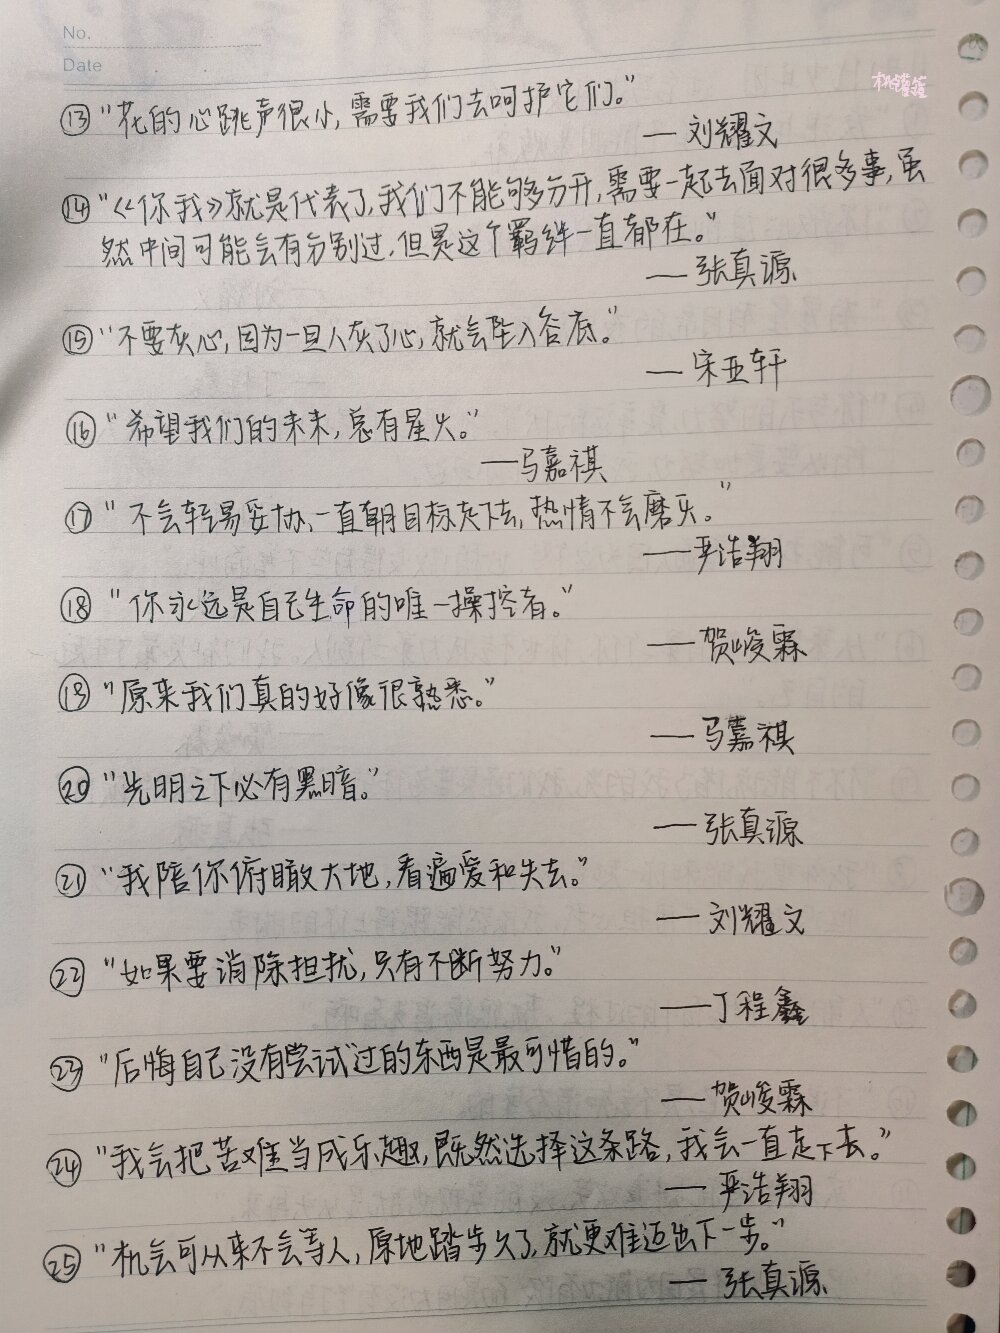 No.
Date
桃罐罐
⑬“花的心跳声很小,需要我们去呵护它们。”
—刘耀文
⑭“《你我》就是代表了,我们不能够分开,需要一起去面对很多事,虽
然中间可能会有分别过,但是这个羁绊一直都在。”
—张真源
⑮“不要灰心,因为一旦人灰了心,就会坠入谷底。”
—宋亚轩
⑯“希望我们的未来,总有星火。”
—马嘉祺
⑰“不会轻易妥协,一直朝目标走下去,热情不会磨灭。”
—严浩翔
⑱“你永远是自己生命的唯一操控者。”
—贺峻霖
⑲“原来我们真的好像很熟悉。”
—马嘉祺
⑳“光明之下必有黑暗。”
—张真源
㉑“我陪你俯瞰大地,看遍爱和失去。”
—刘耀文
㉒“如果要消除担扰,只有不断努力。”
—丁程鑫
㉓“后悔自己没有尝试过的东西是最可惜的。”
—贺峻霖
㉔“我会把苦难当成乐趣,既然选择这条路,我会一直走下去。”
—严浩翔
㉕“机会可从来不会等人,原地踏步久了,就更难迈出下一步。”
—张真源